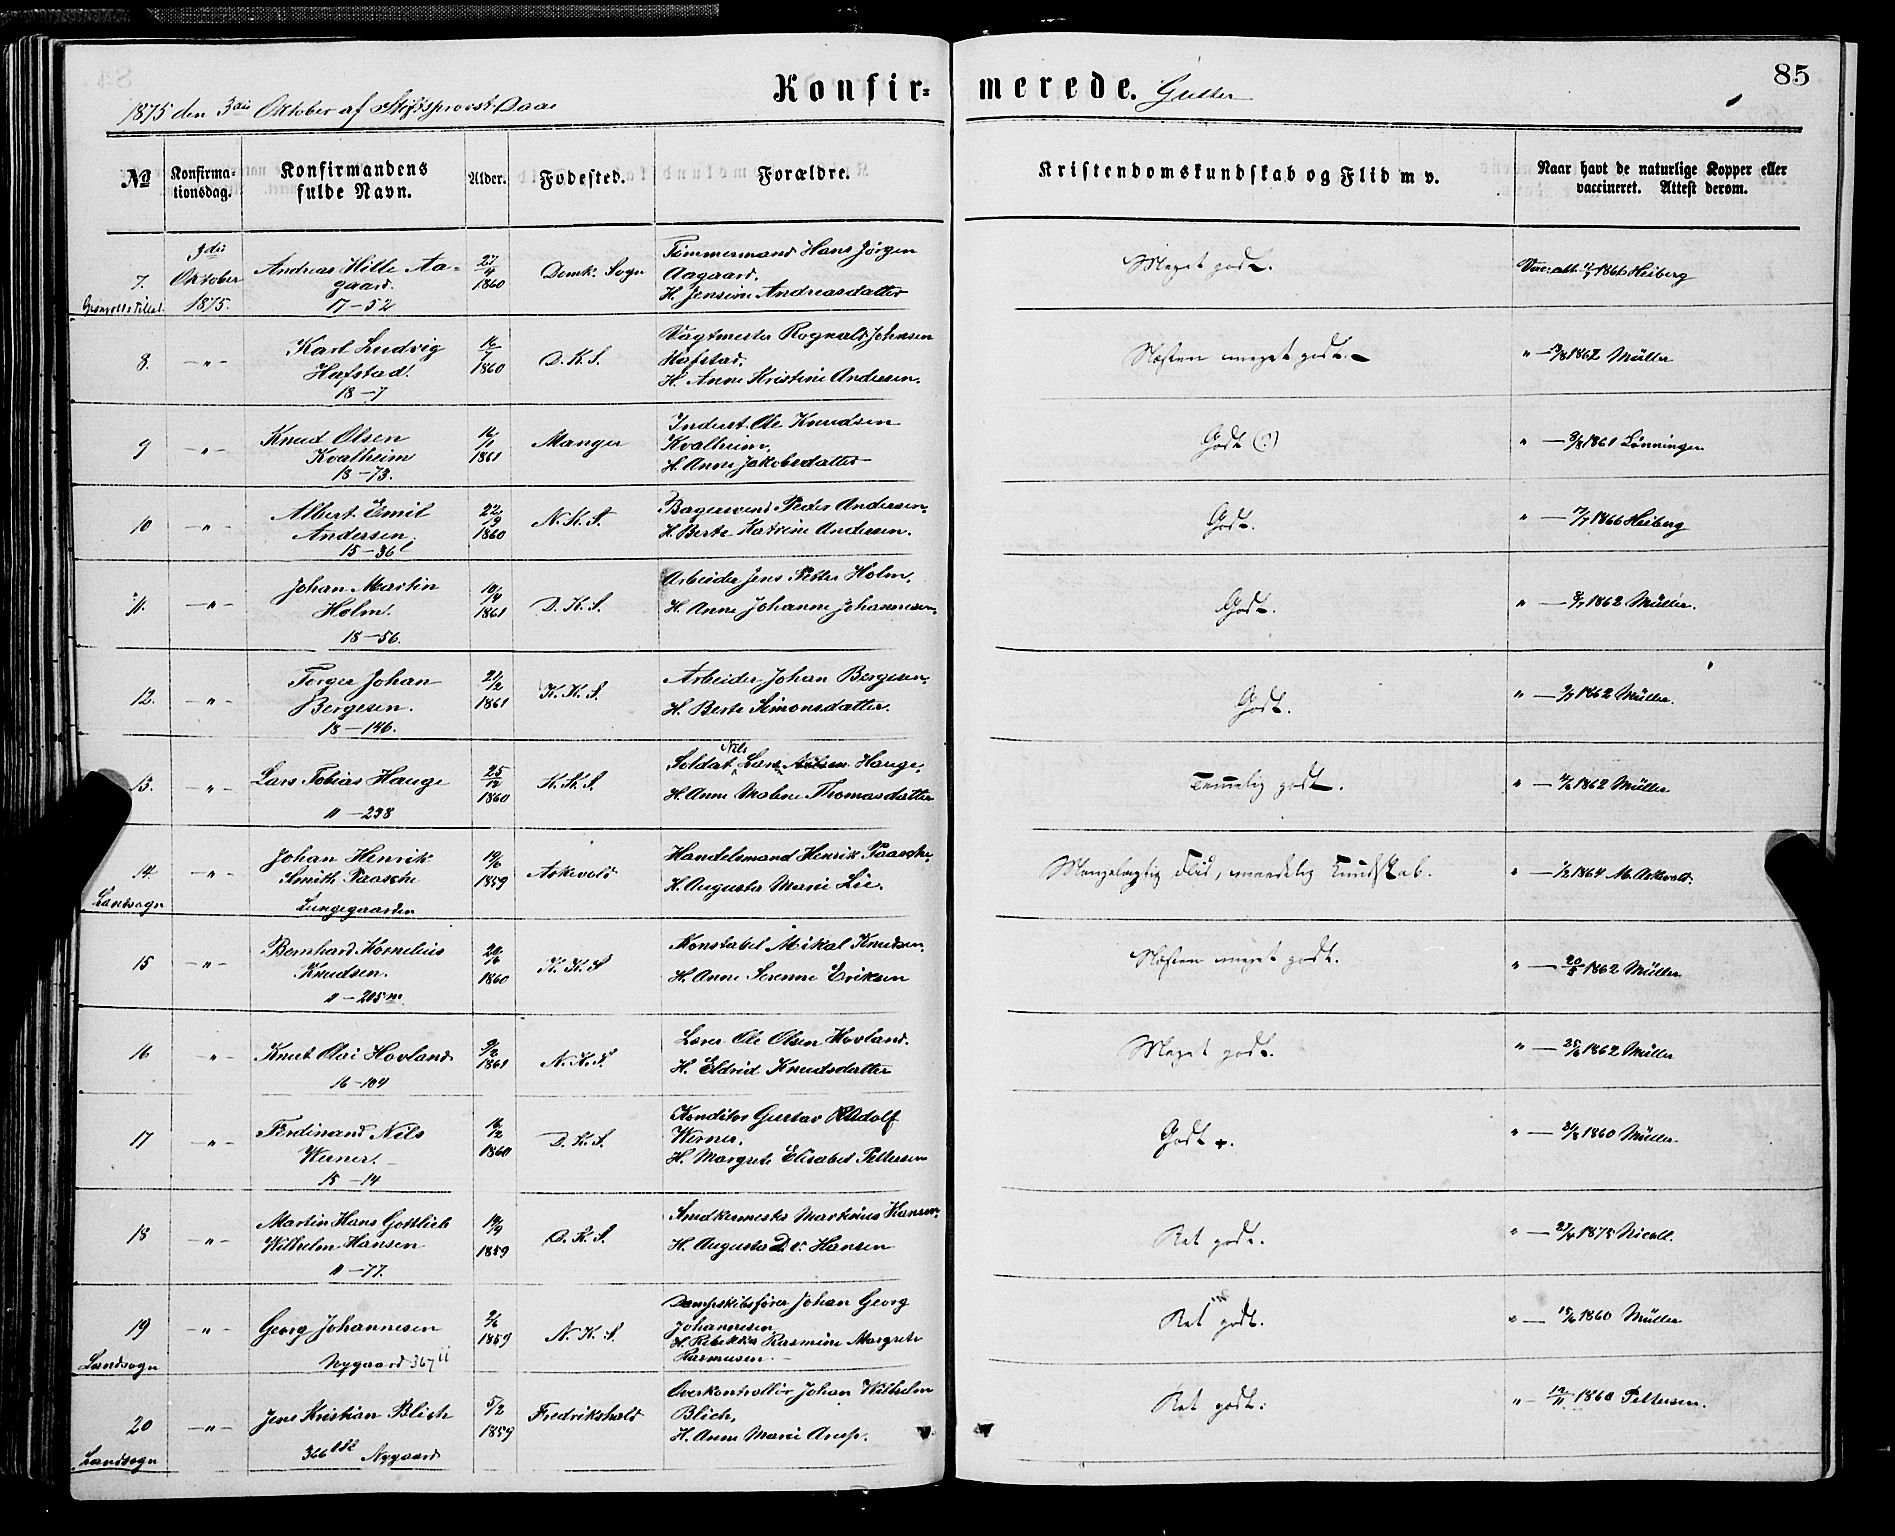 85
Konfir= merede. Gutter
1875 den 3die Oktober af Stiftsprovst Daae
No
Konfirma=
tionsdag.
Konfirmandens
fulde Navn.
Alder.
Fødested.
Forældre.
Kristendomskundskab og Flid m v.
Naar havt de naturlige Kopper eller
vaccineret. Attest derom.
7. 3die Oktober 1875. Andreas Hille Aa=
gaard.
17-52
27/4 1860 Domk. Sogn
Tømmermand Hans Jørgen
Aagaard.
H. Jensine Andreasdatter
Meget godt. Vac: att. 1866 Heiberg
8. -"- Karl Ludvig
Hafstad.
18-7
16/7 1860 D. K. S.
Vagtmester Rognald Johnsen
Hafstad.
H. Anne Kristine Andersen.
Næsten meget godt. " - 1862 Müller
9 -"- Knud Olsen
Kvalheim
18-73.
16/11 1861 Manger
Inderst Ole Knudsen
Kvalheim.
H. Anne Jakobsdatter
Godt (?) " - 1861 Lønningen
10 -"- Albert Emil
Andersen.
15-36
22/12 1860 N. K. S.
Bagersvend Peder Andersen.
H. Berte Katrine Andersen.
Godt. " - 1866 Heiberg
11. -"- Johan Martin
Holm.
18-56.
10/4 1861 D. K. S.
Arbeider Jens Petter Holm.
H. Anne Johanne Johannesen.
Godt. " - 1862 Müller.
12. -"- Torger Johan
Bergesen.
18-146.
21/2 1861 K. K. S.
Arbeider Johan Bergesen.
H. Berte Simonsdatter.
Godt. " - 1862 Müller.
13. -"- Lars Tobias Hauge
11-238
25/12 1860 K. K. S.
Soldat Nils Lars Nilsen Hauge.
H. Anne Malene Thomasdatter
Temmelig godt. " - 1862 Müller
14. -"- Johan Henrik
Smith Paasche
Lungegaarden
Landsogn
19/6 1859 Askevold
Handelsmand Henrik Paasche.
H. Augusta Marie Lie.
Mangelagtig Flid, maadelig Kundskab. " - 1864 M. Askvold.
15 -"- Bernhard Kornelius
Knudsen.
11-205
20/6 1860 K. K. S
Konstabel Mikal Knudsen.
H. Anne Serenne Eriksen
Næsten meget godt. " - 20/5 1862 Müller
16 -"- Knut Olai Hovland
16-104
9/2 1861 N. K. S.
Lærer Ole Olsen Hovland.
H. Eldrid Knudsdatter
Meget godt. " - 25/6 1862 Müller
17 -"- Ferdinand Nils
Werner.
18-14
16/2 1860 D. K. S.
Konditor Gustav Rudolf
Werner.
H. Margrete Elisabet Pettersen
Godt +. " - 1860 Müller.
18 -"- Martin Hans Gottlieb
Wilhelm Hansen
11-77.
19/9 1859 D. K. S.
Snedkermester Markus Hansen.
H. Augusta D. v. Hansen
Ret godt. " - 1875 Nicoll.
19 -"- Georg Johannesen
Nygaard 367
Landsogn
2/6 1859 N. K. S.
Dampskibsfører Johan Georg
Johannesen
H. Rebekka Rasmine Margrete
Rasmusen.
Ret godt. " - 1860 Müller
20 -"- Jens Kristian Blich
366 Nygaard
Landsogn
5/2 1859 Fredrikshald
Overkontrollør Johan Wilhelm
Blich,
H. Anne Marie Arup.
Ret godt. " - 12/11 1860 Pettersen.